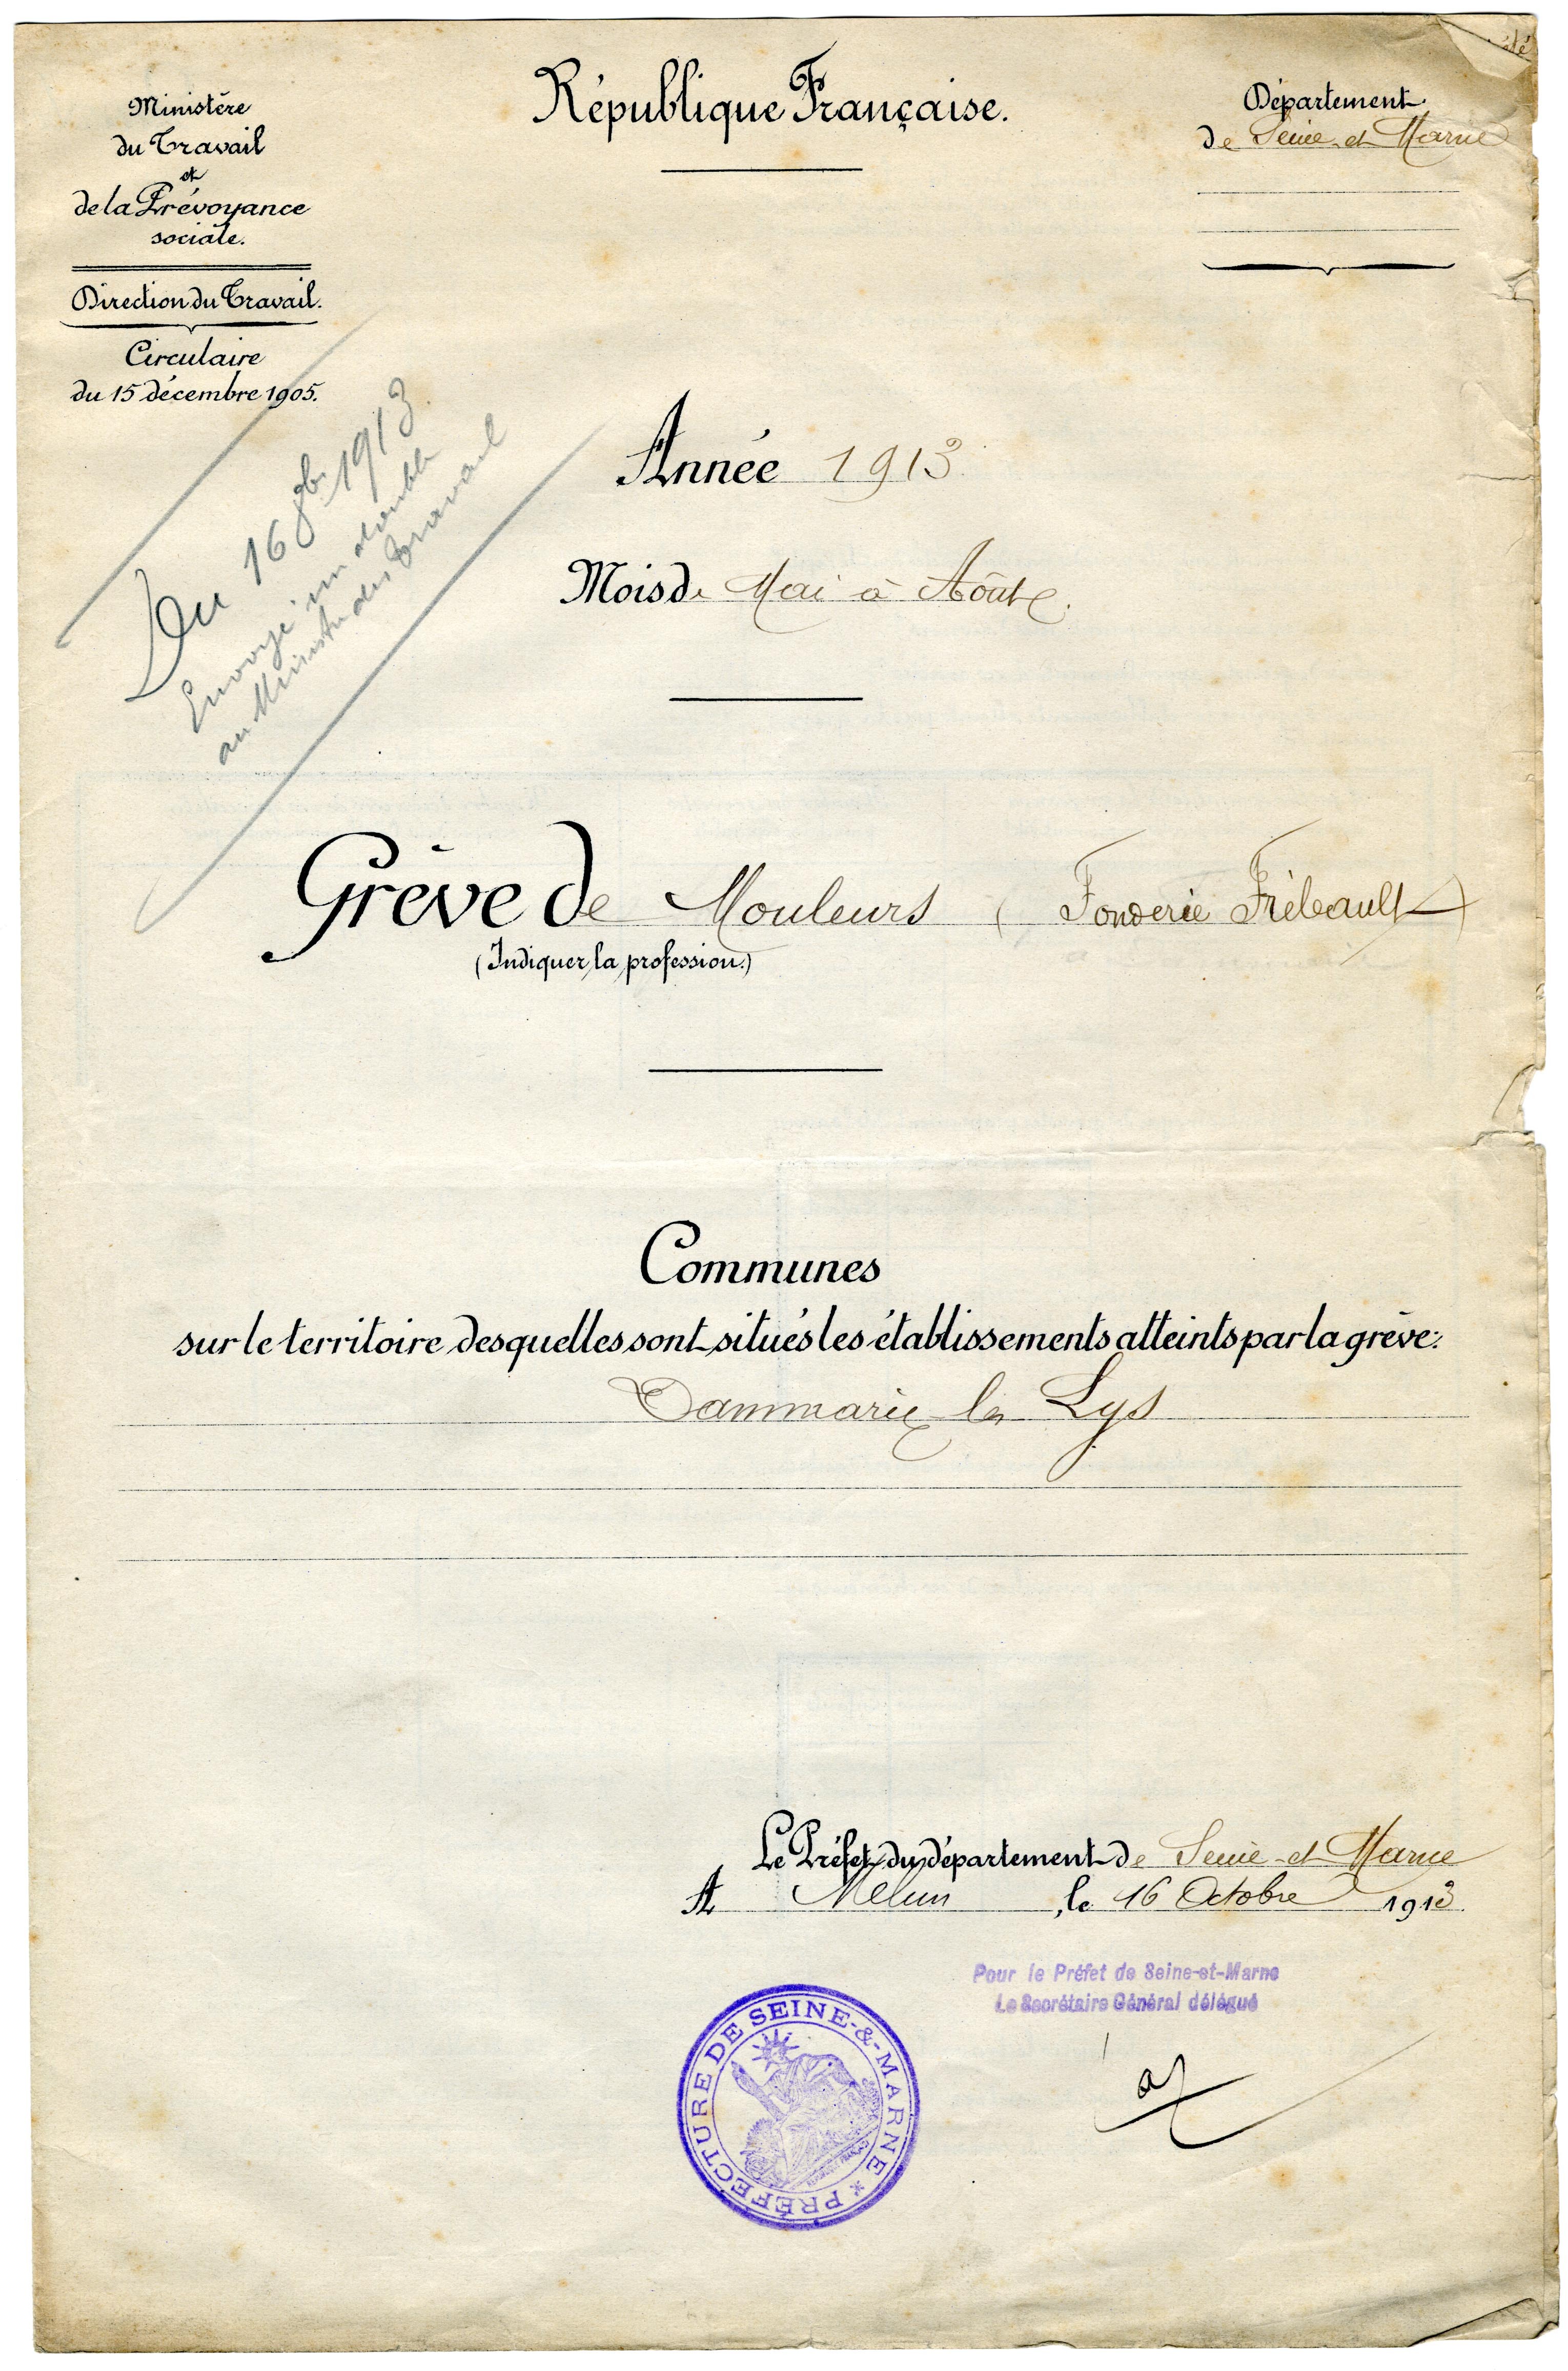 Ministère
du Travail
et
de la Prévoyance
sociale.
Direction du Travail.
Circulaire
du 15 décembre 1905.
République Française.
Département
de Seine-et-Marne
Du 16 8bre 1913
Envoyé un double
au Ministre du Travail
Année 1913
Mois de Mai à Août
Grève de Mouleurs (Fonderie Frébault)
(Indiquer la profession.)
Communes
sur le territoire desquelles sont situés les établissements atteints par la grève:
Dammarie les Lys
Le Préfet du département de Seine-et-Marne
A Melun, le 16 Octobre 1913.
Pour le Préfet de Seine-et-Marne
Le Secrétaire Général délégué
PRÉFECTURE DE SEINE-&-MARNE *